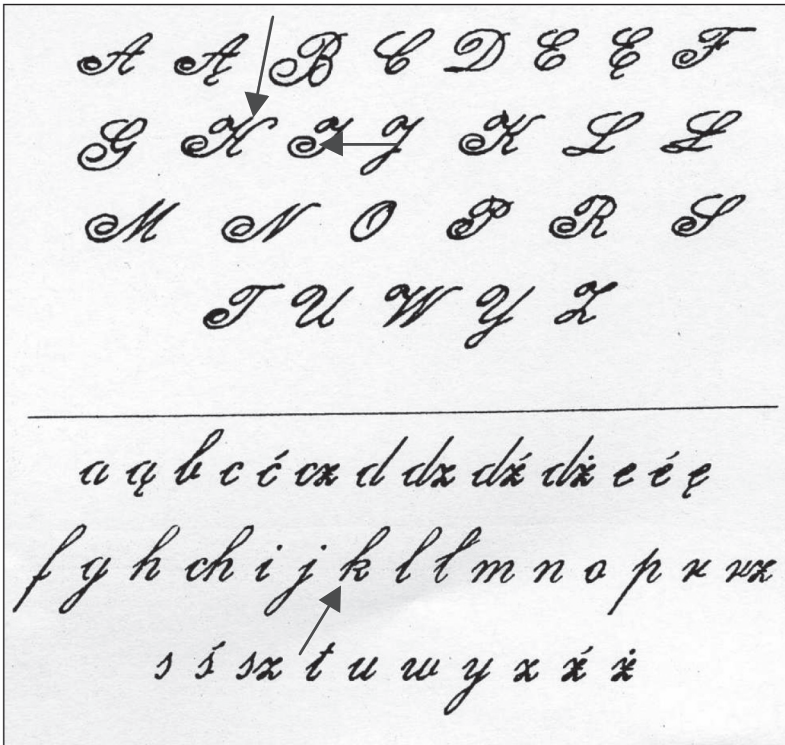 A Ą B C D E Ę F
G H I J K L Ł
M N O P R S
T U W Y Z
a ą b c ć cz d dz dź dż e é ę
f g h ch i j k l ł m n o p r rz
s ś sz t u w y z ź ż